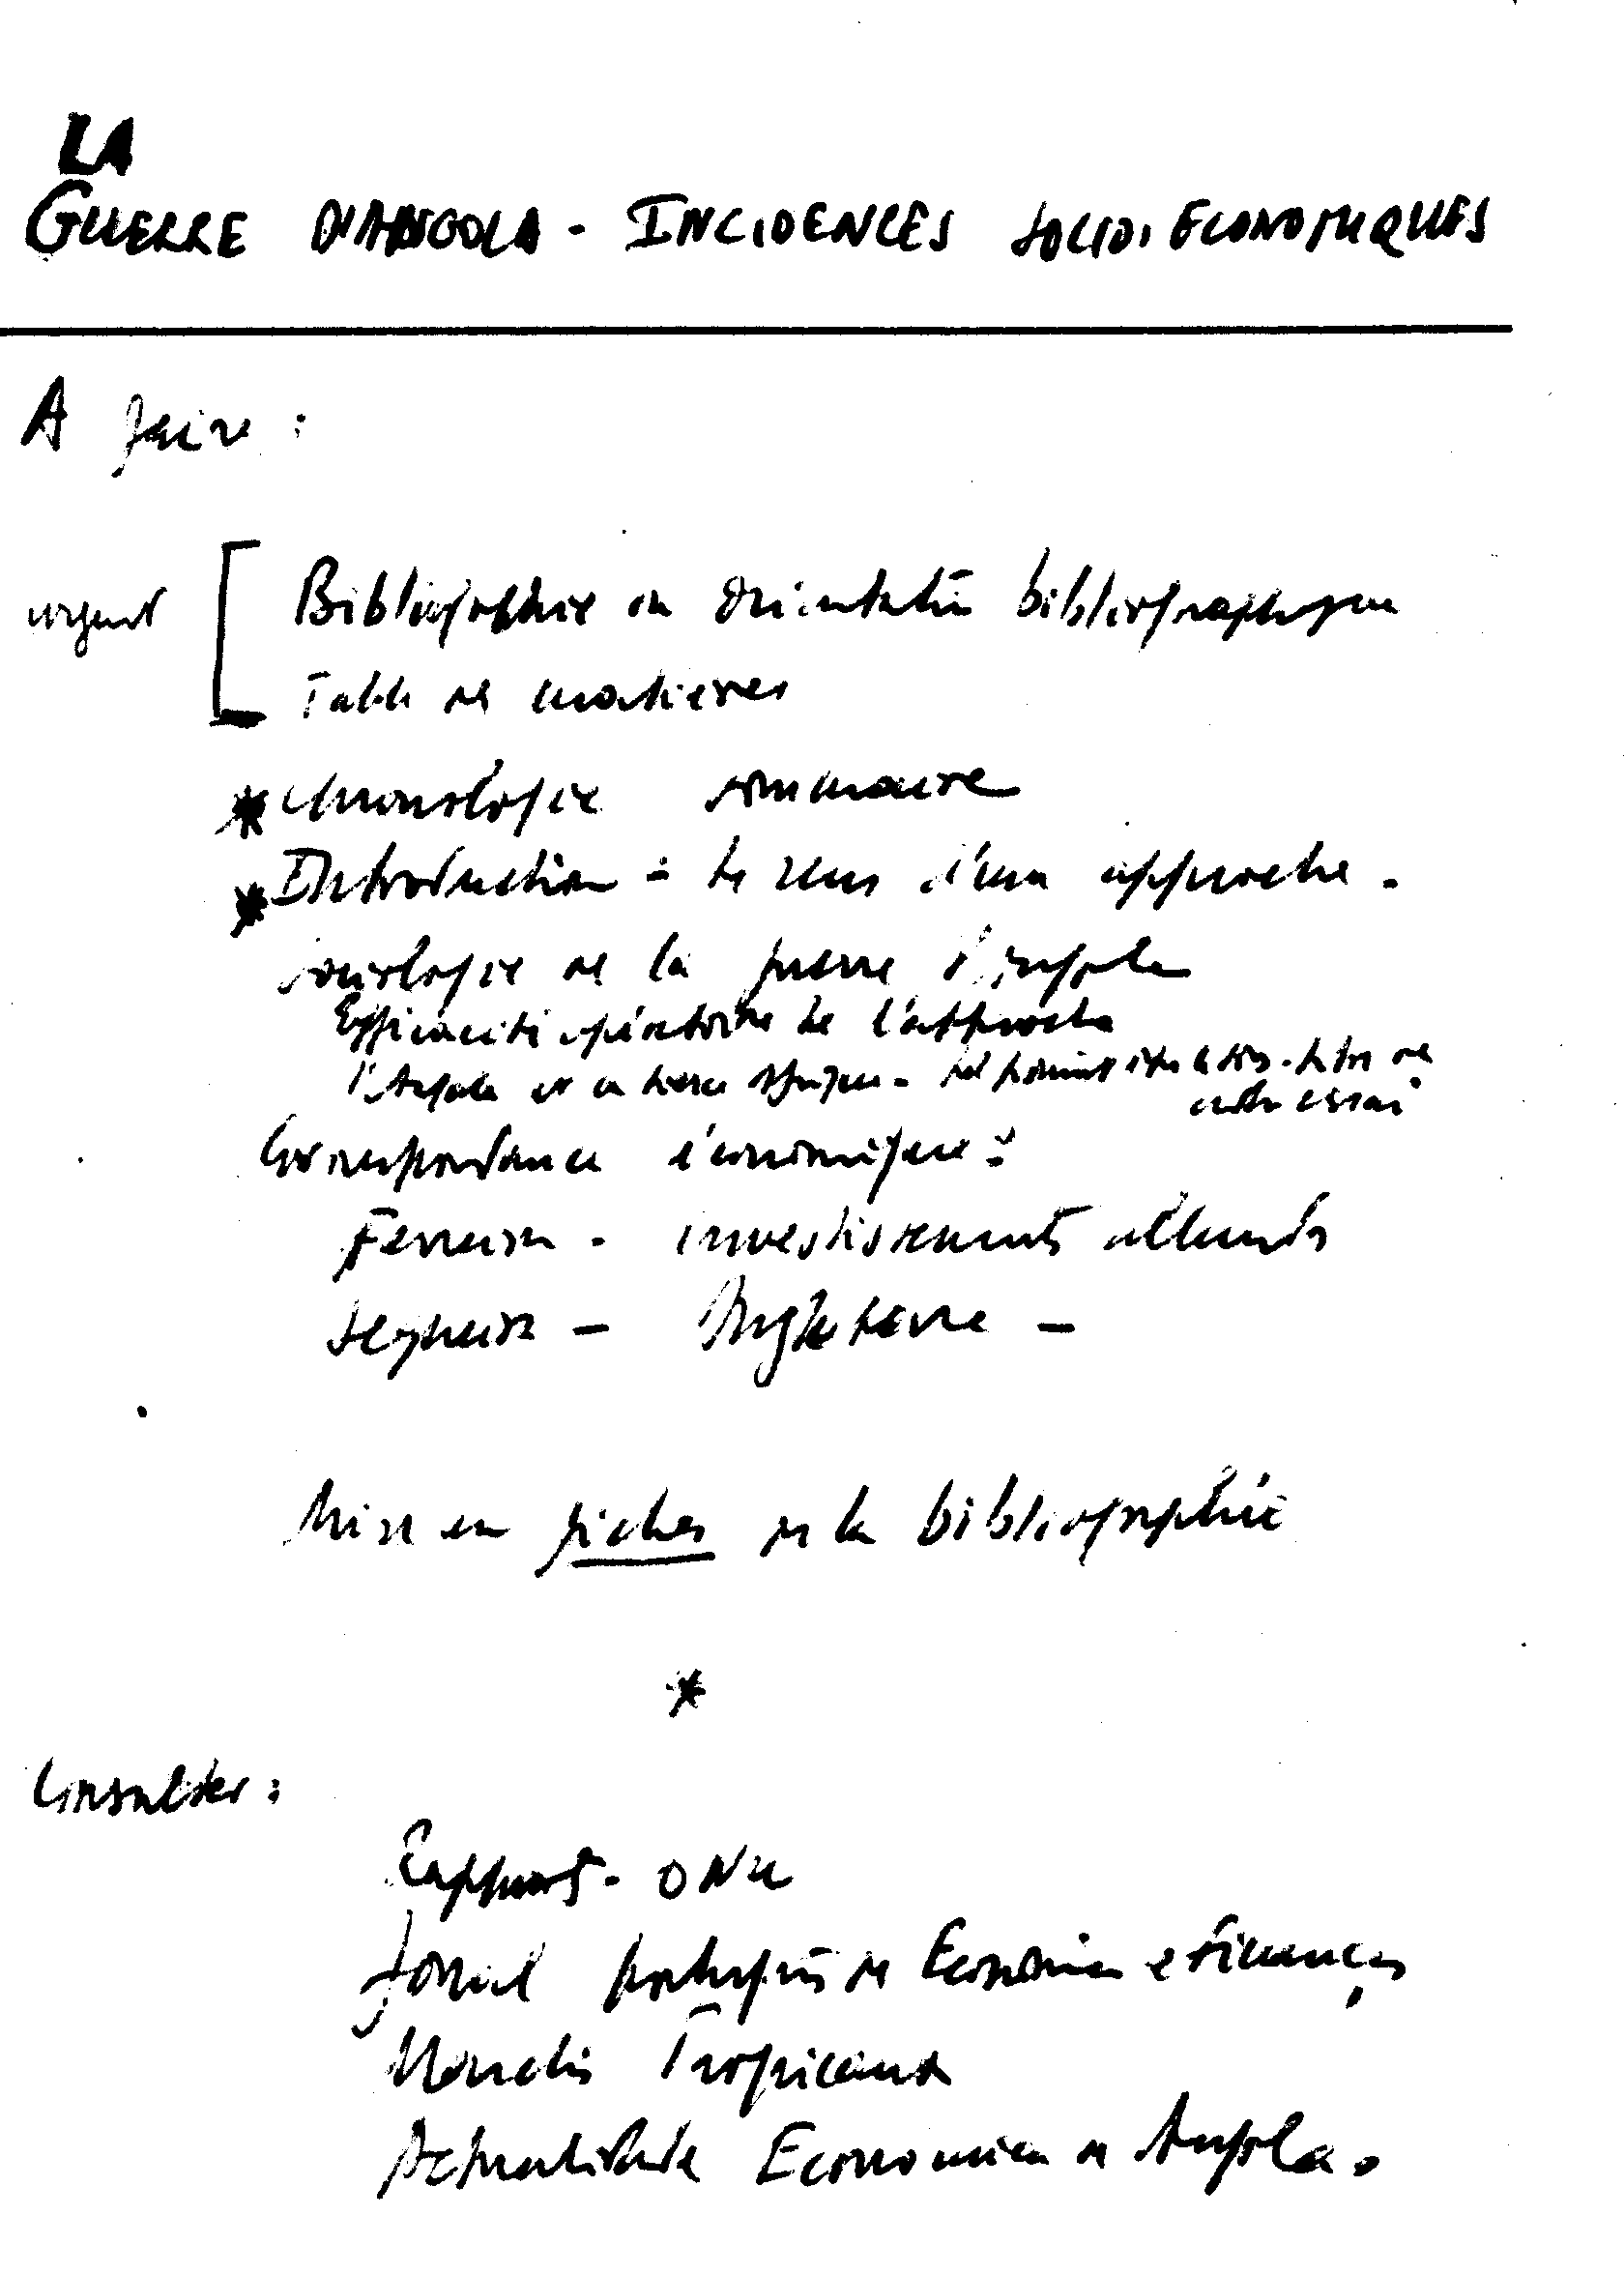 LA
GUERRE D'ANGOLA - INCIDENCES SOCIO-ECONOMIQUES
A faire :
urgent
Bibliographie ou orientation bibliographique
Table de matières
* Chronologie sommaire
* Introduction : le sens d'une approche -
sociologie de la guerre d'Angola
Efficacité opératoire de l'approche
l'Angola et en Afrique -
notre essai
Correspondance économique :
Ferreira - investissements allemands
Sequeira - Angleterre -
Mise en fiches de la bibliographie
*
Consulter :
Rapport - ONU
Jornal português de Economia e Finanças
Marchés Tropicaux
Actualidade Economica de Angola.